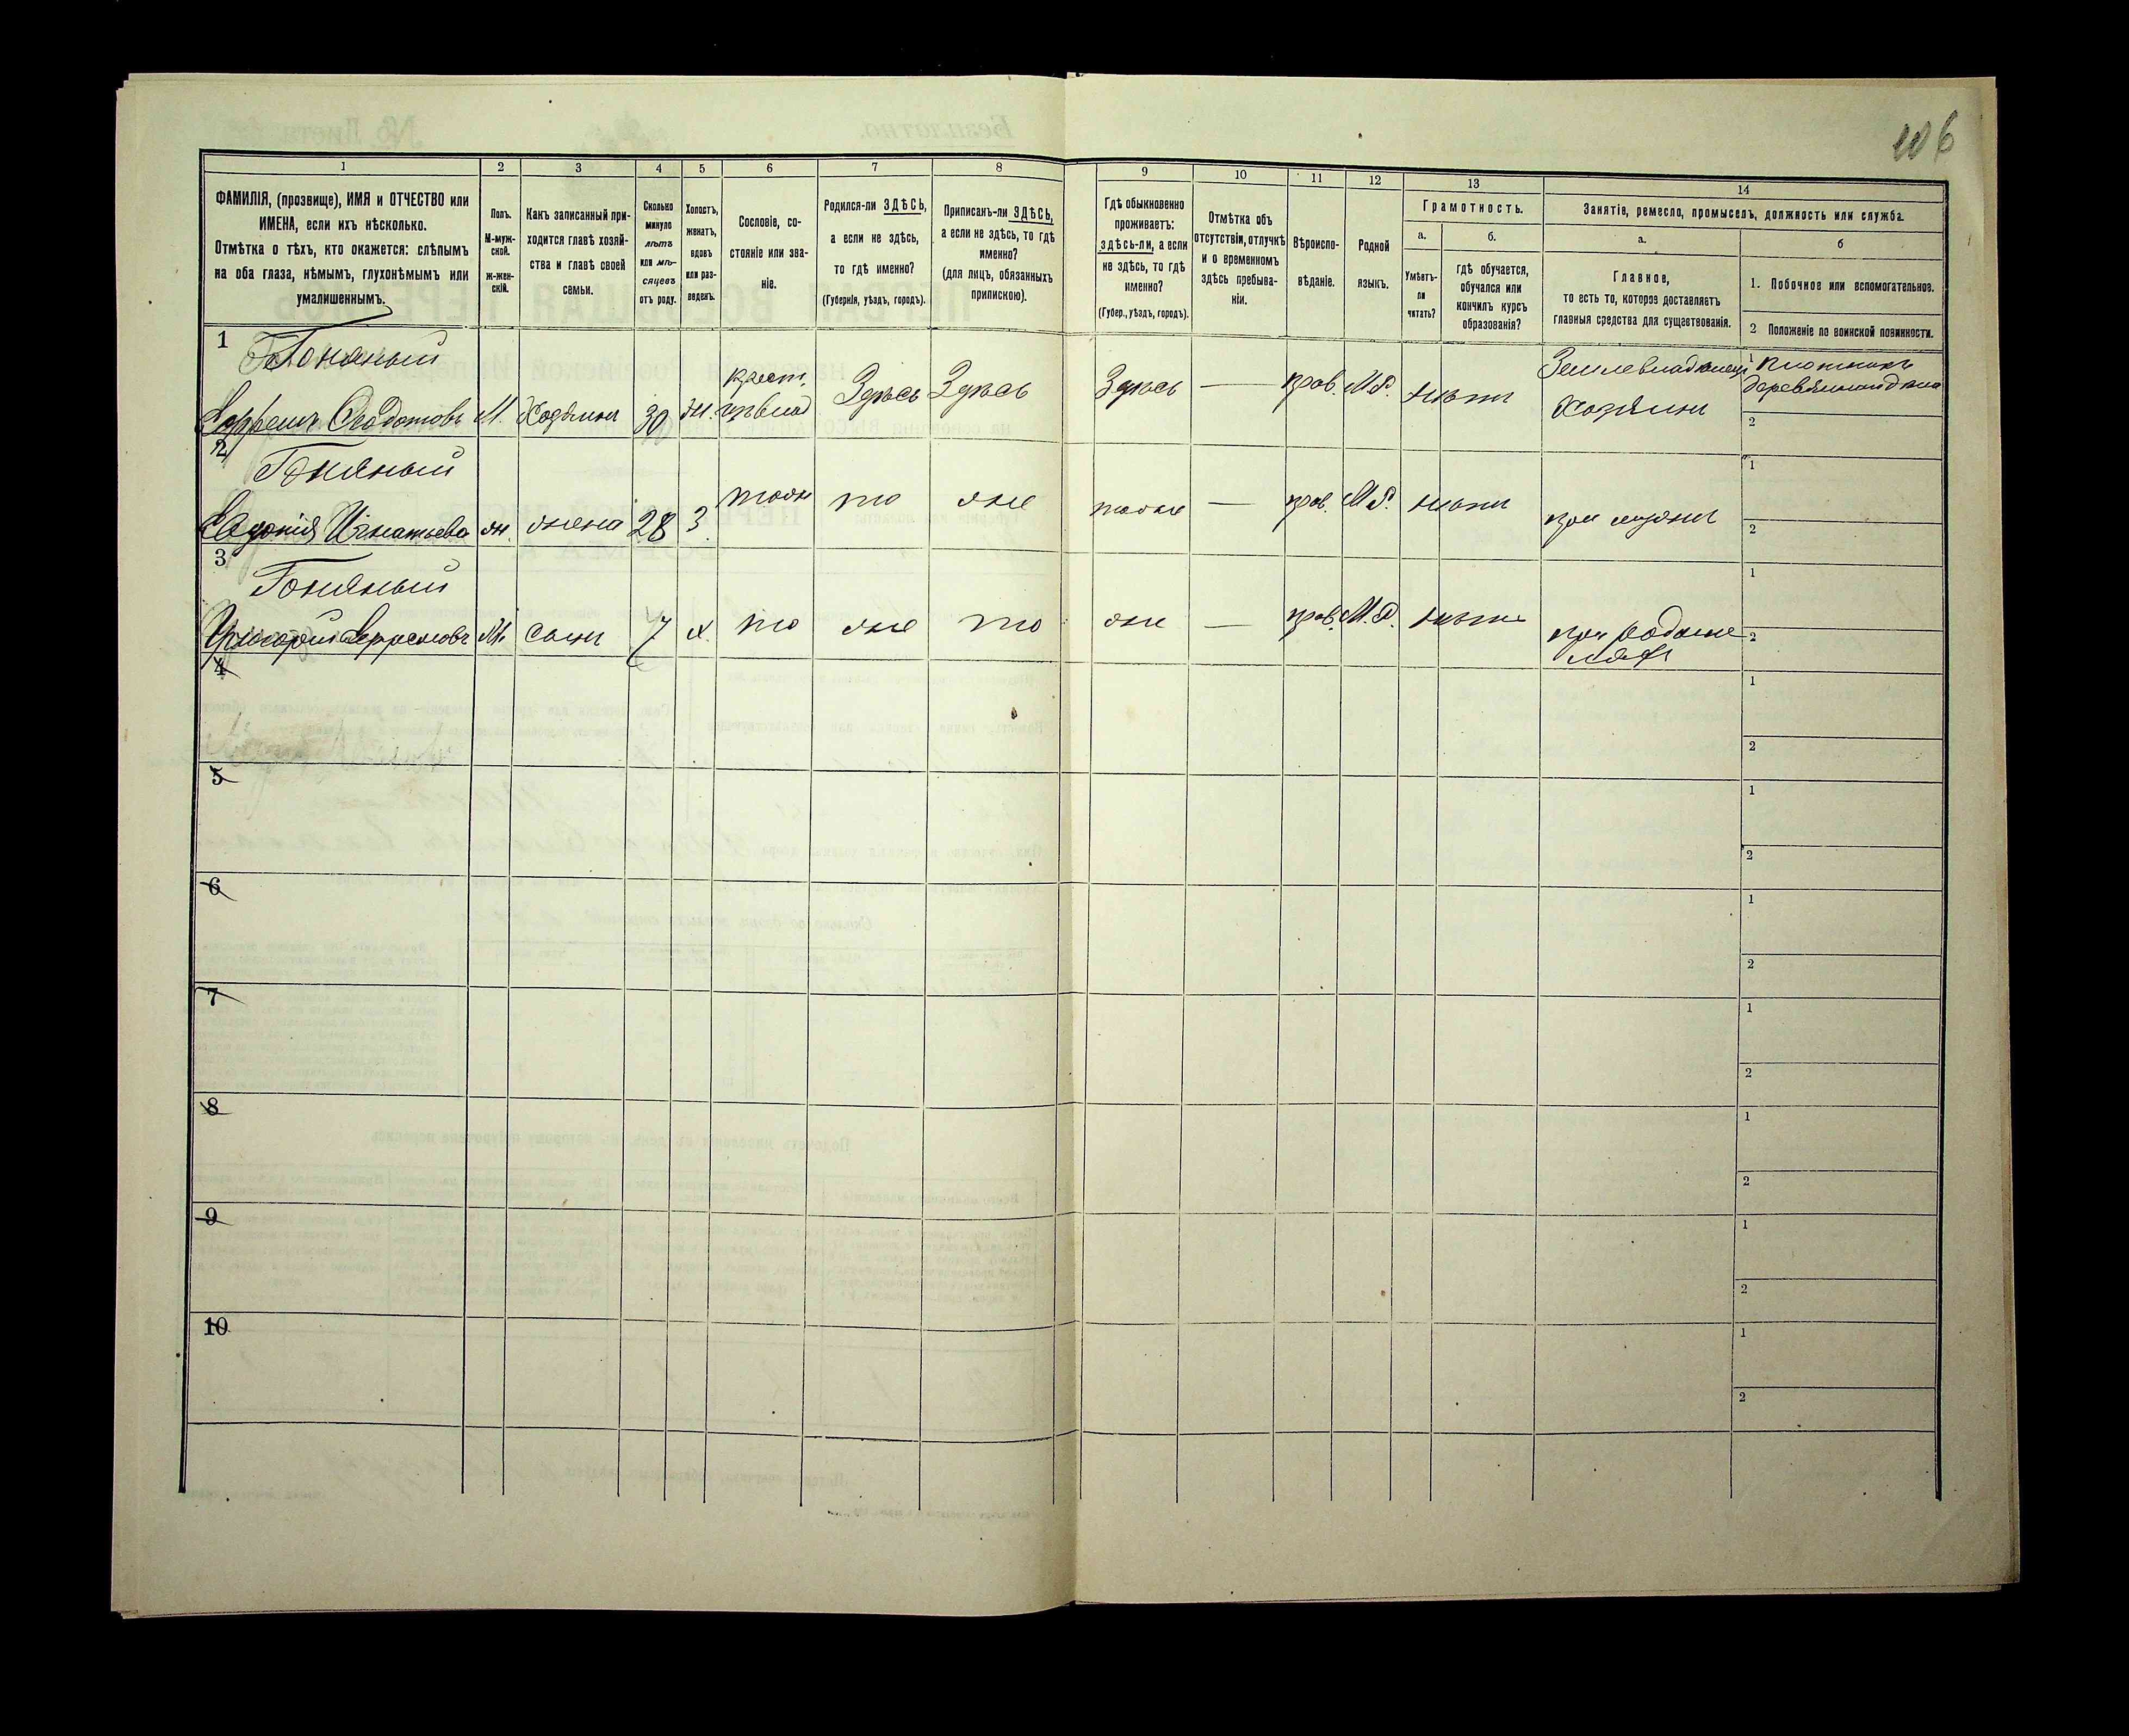 106
1 2 3 4 5 6 7 8 9 10 11 12 13 14
ФАМИЛІЯ, (прозвище), ИМЯ и ОТЧЕСТВО или
ИМЕНА, если ихъ нѣсколько.
Отмѣтка о тѣхъ, кто окажется: слѣпымъ
на оба глаза, нѣмымъ, глухонѣмымъ или
умалишеннымъ.
Полъ.
М-муж-
ской.
ж-жен-
скій.
Какъ записанный при-
ходится главѣ хозяй-
ства и главѣ своей
семьи.
Сколько
минуло
лѣтъ
или мѣ-
сяцевъ
отъ роду.
Холостъ,
женатъ,
вдовъ
или раз-
веденъ.
Сословіе, со-
стояніе или зва-
ніе.
Родился-ли ЗДѢСЬ,
а если не здѣсь,
то гдѣ именно?
(Губернія, уѣздъ, городъ).
Приписанъ-ли ЗДѢСЬ,
а если не здѣсь, то гдѣ
именно?
(для лицъ, обязанныхъ
припискою).
Гдѣ обыкновенно
проживаетъ:
здѣсь-ли, а если
не здѣсь, то гдѣ
именно?
(Губер., уѣздъ, городъ).
Отмѣтка объ
отсутствіи, отлучкѣ
и о временномъ
здѣсь пребыва-
ніи.
Вѣроиспо-
вѣданіе.
Родной
языкъ.
Грамотность.
а.
Умѣетъ-
ли
читать?
б.
гдѣ обучается,
обучался или
кончилъ курсъ
образованія?
Занятіе, ремесло, промыселъ, должность или служба.
а.
Главное,
то есть то, которое доставляетъ
главныя средства для существованія.
б
1. Побочное или вспомогательное.
2 Положеніе по воинской повинности.
1
Гоняный
М. Хозяинъ 30 Ж. крест.
Здѣсь Здѣсь Здѣсь — прав. М.Р. нѣтъ
Землевладѣлецъ
Хозяинъ
1 плотникъ
2
2
Гоняный
Игнатьева ж. жена 28 З. тоже то же тоже — прав. М.Р. нѣтъ при мужѣ
1
2
3
Гоняный
Григорій М. сынъ 7 х. то же то же — прав. М.Р. нѣтъ
1
2
4
1
2
5
1
2
6
1
2
7
1
2
8
1
2
9
1
2
10
1
2